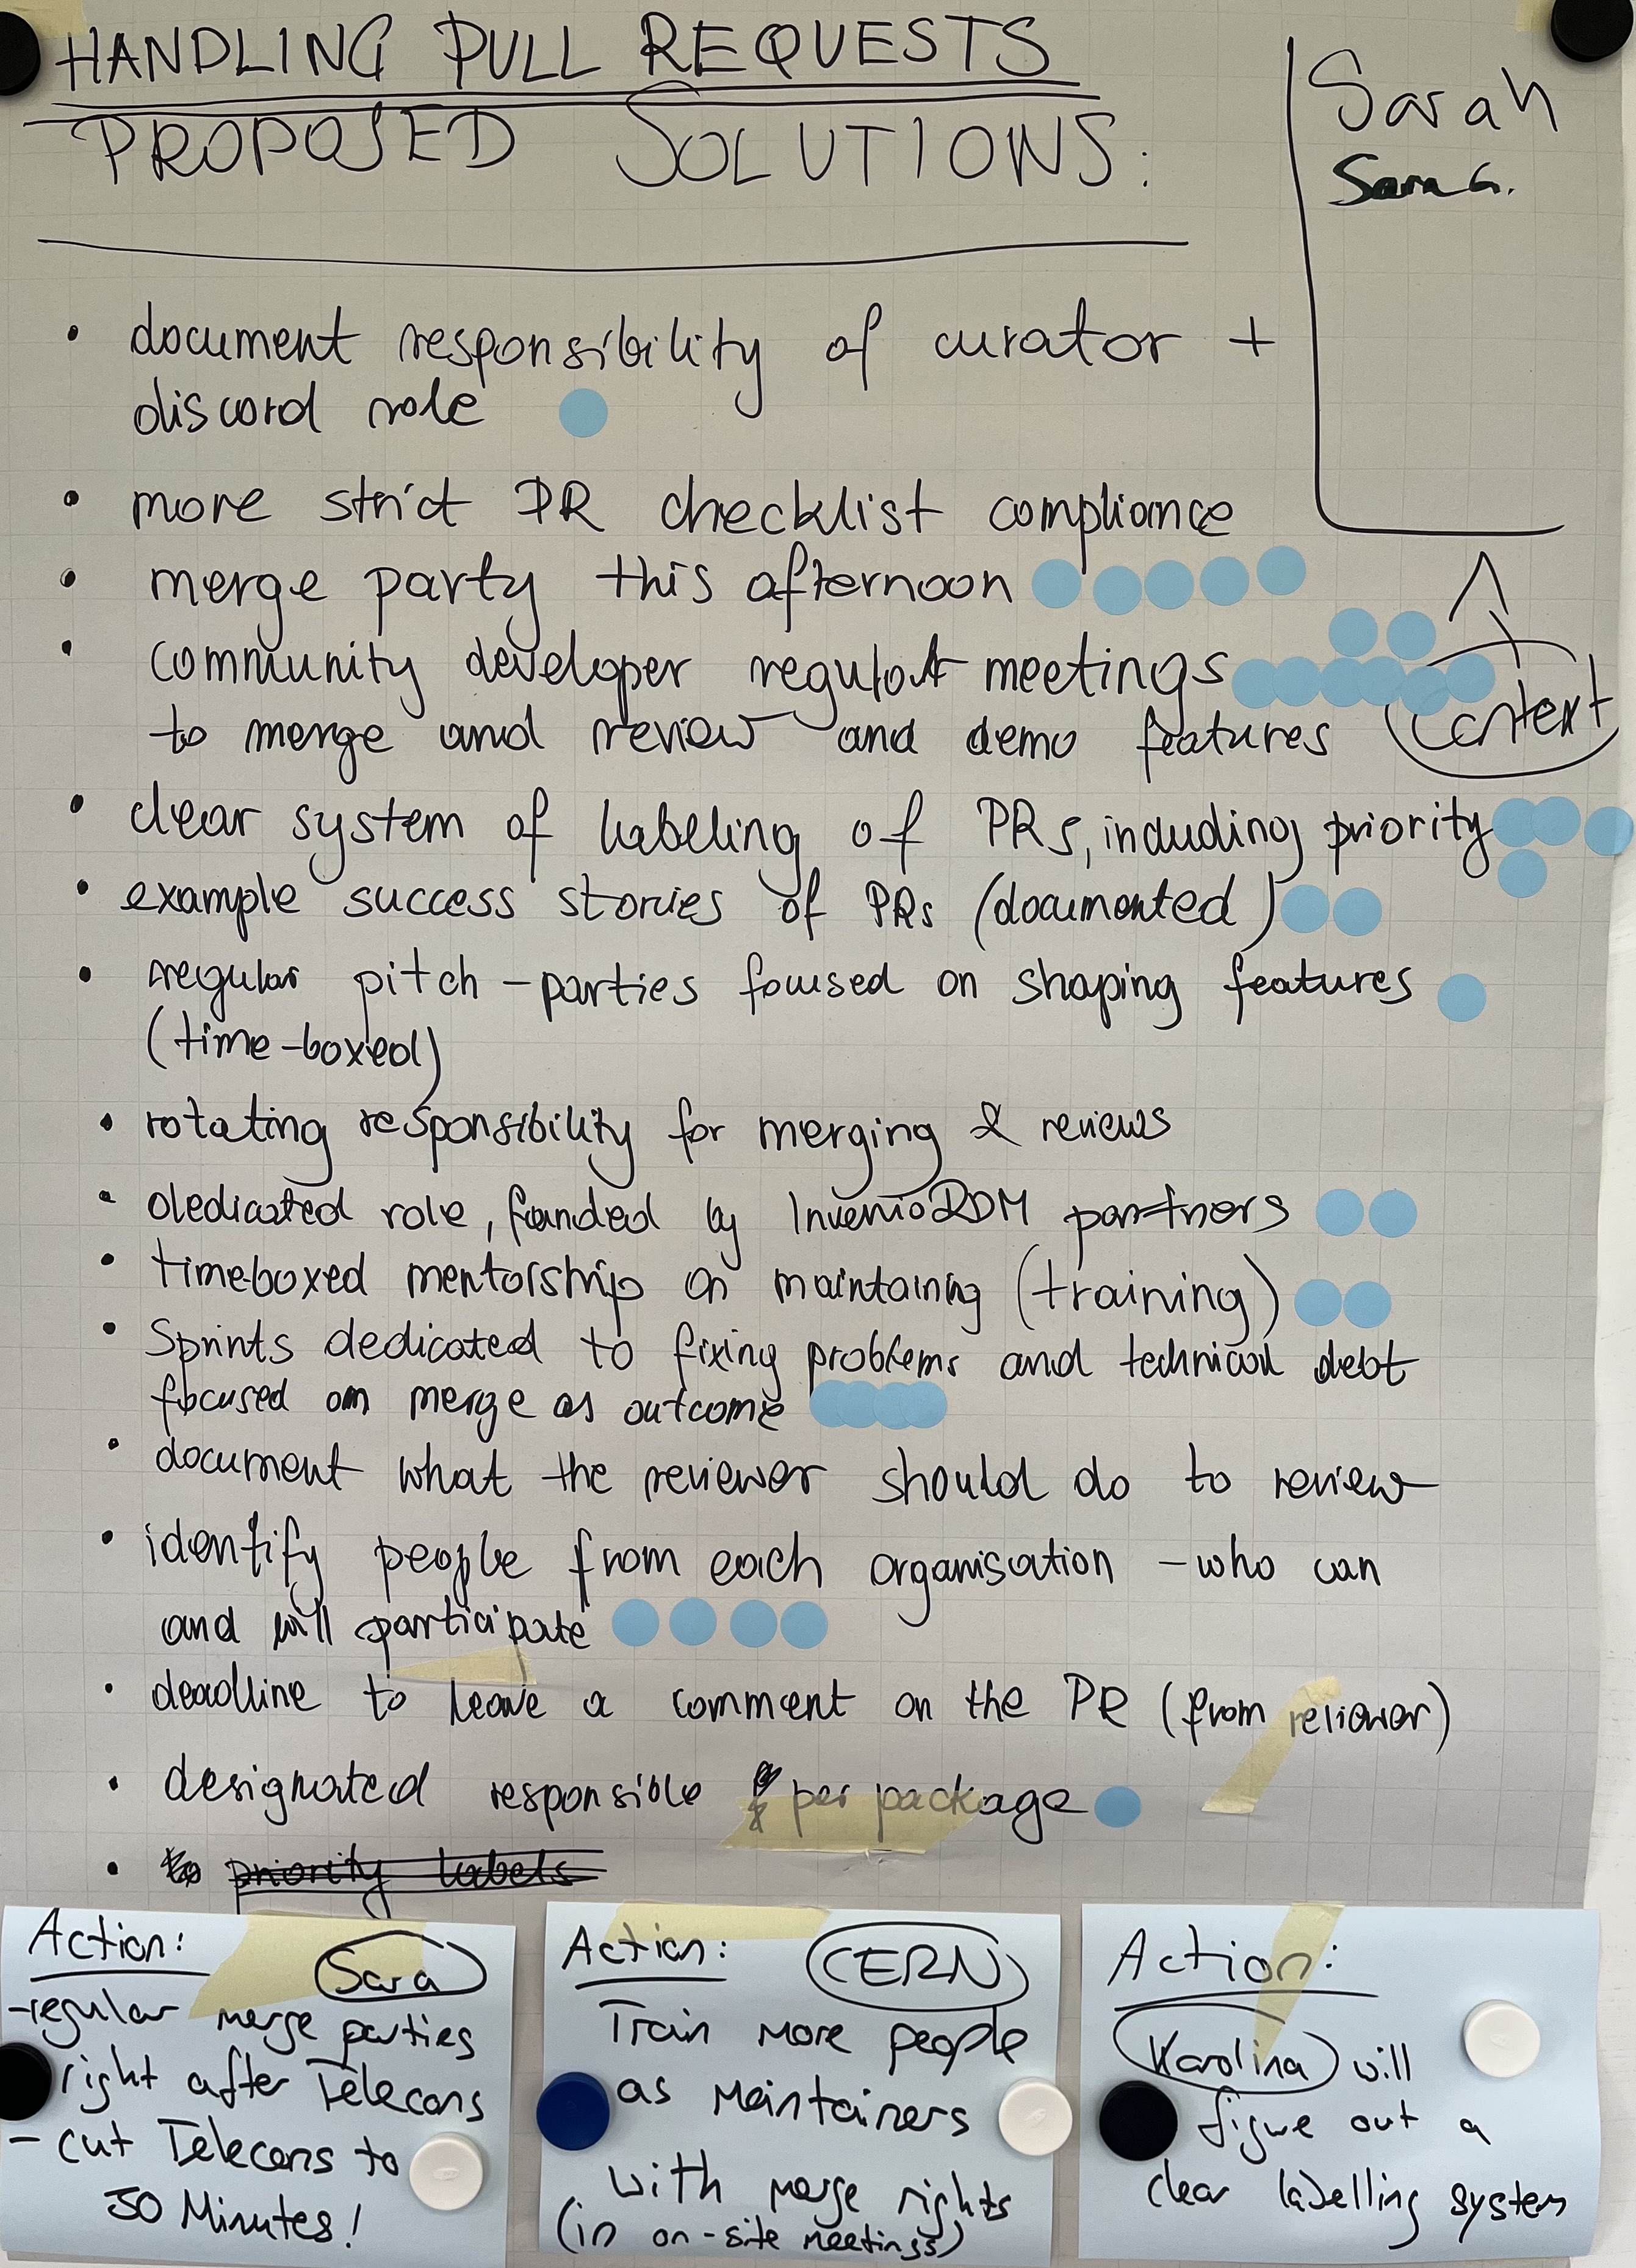 HANDLING PULL REQUESTS
PROPOSED SOLUTIONS:
Sarah
Sara G.
• document responsibility of curator +
discord role
• more strict PR checklist compliance
• merge party this afternoon
• community developer regular meetings
to merge and review and demo features
context
• clear system of labeling of PRs, including priority
• example success stories of PRs (documented)
• regular pitch-parties focused on shaping features
(time-boxed)
• rotating responsibility for merging & reviews
• dedicated role, funded by InvenioRDM partners
• timeboxed mentorship on maintaining (training)
• Sprints dedicated to fixing problems and technical debt
focused on merge as outcome
• document what the reviewer should do to review
• identify people from each organisation - who can
and will participate
• deadline to leave a comment on the PR (from reliewer)
• designated responsible per package
• priority labels
Action: Sara
- regular merge parties
right after Telecons
- cut Telecons to
30 Minutes!
Action: CERN
Train more people
as Maintainers
with merge rights
(in on-site meetings)
Action:
Karolina will
figure out a
clear labelling system